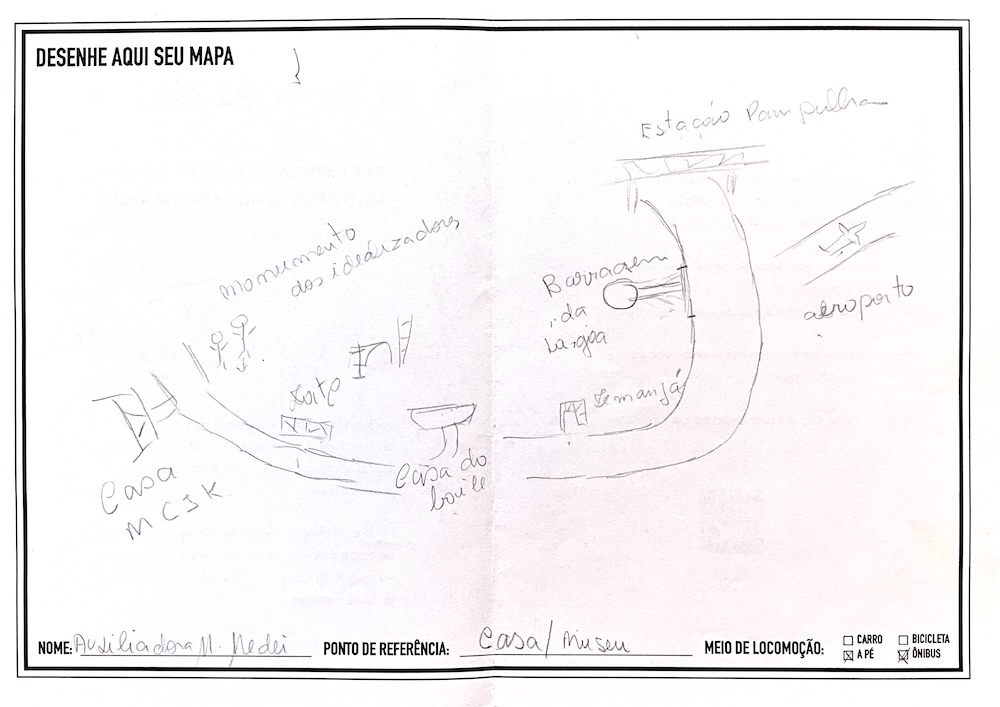 DESENHE AQUI SEU MAPA
Estação Pampulha
monumento
dos idealizadores
Barragem
da
Lagoa
aeroporto
Iemanjá
Casa do
baile
Casa
MCJK
NOME: Auxiliadora M.
PONTO DE REFERÊNCIA: Casa/Museu
MEIO DE LOCOMOÇÃO:
CARRO
BICICLETA
A PÉ
ÔNIBUS